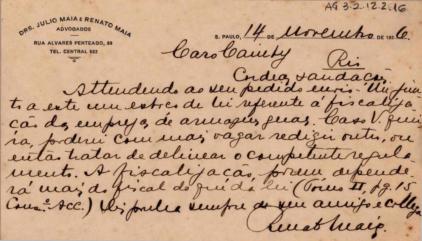 AG 3-2.12.2.16
DRS. JULIO MAIA E RENATO MAIA
ADVOGADOS
RUA ALVARES PENTEADO, 38
TEL. CENTRAL
S. PAULO, 14 de Novembro de 1926.
Caro
Rio
Cordeaes saudações.
Attendendo ao seu pedido envio
ta a este um esboço de lei referente á fiscaliza
ção da empreza de armazens geraes. Caso V. quei
ra, poderei com mais vagar redigir outro, ou
então tratar de delinear o competente regula
mento. A fiscalização, porem depende
rá mais do fiscal do que da lei (Tomo II, pg. 15
sempre do seu amigo e collega
Renato Maia.